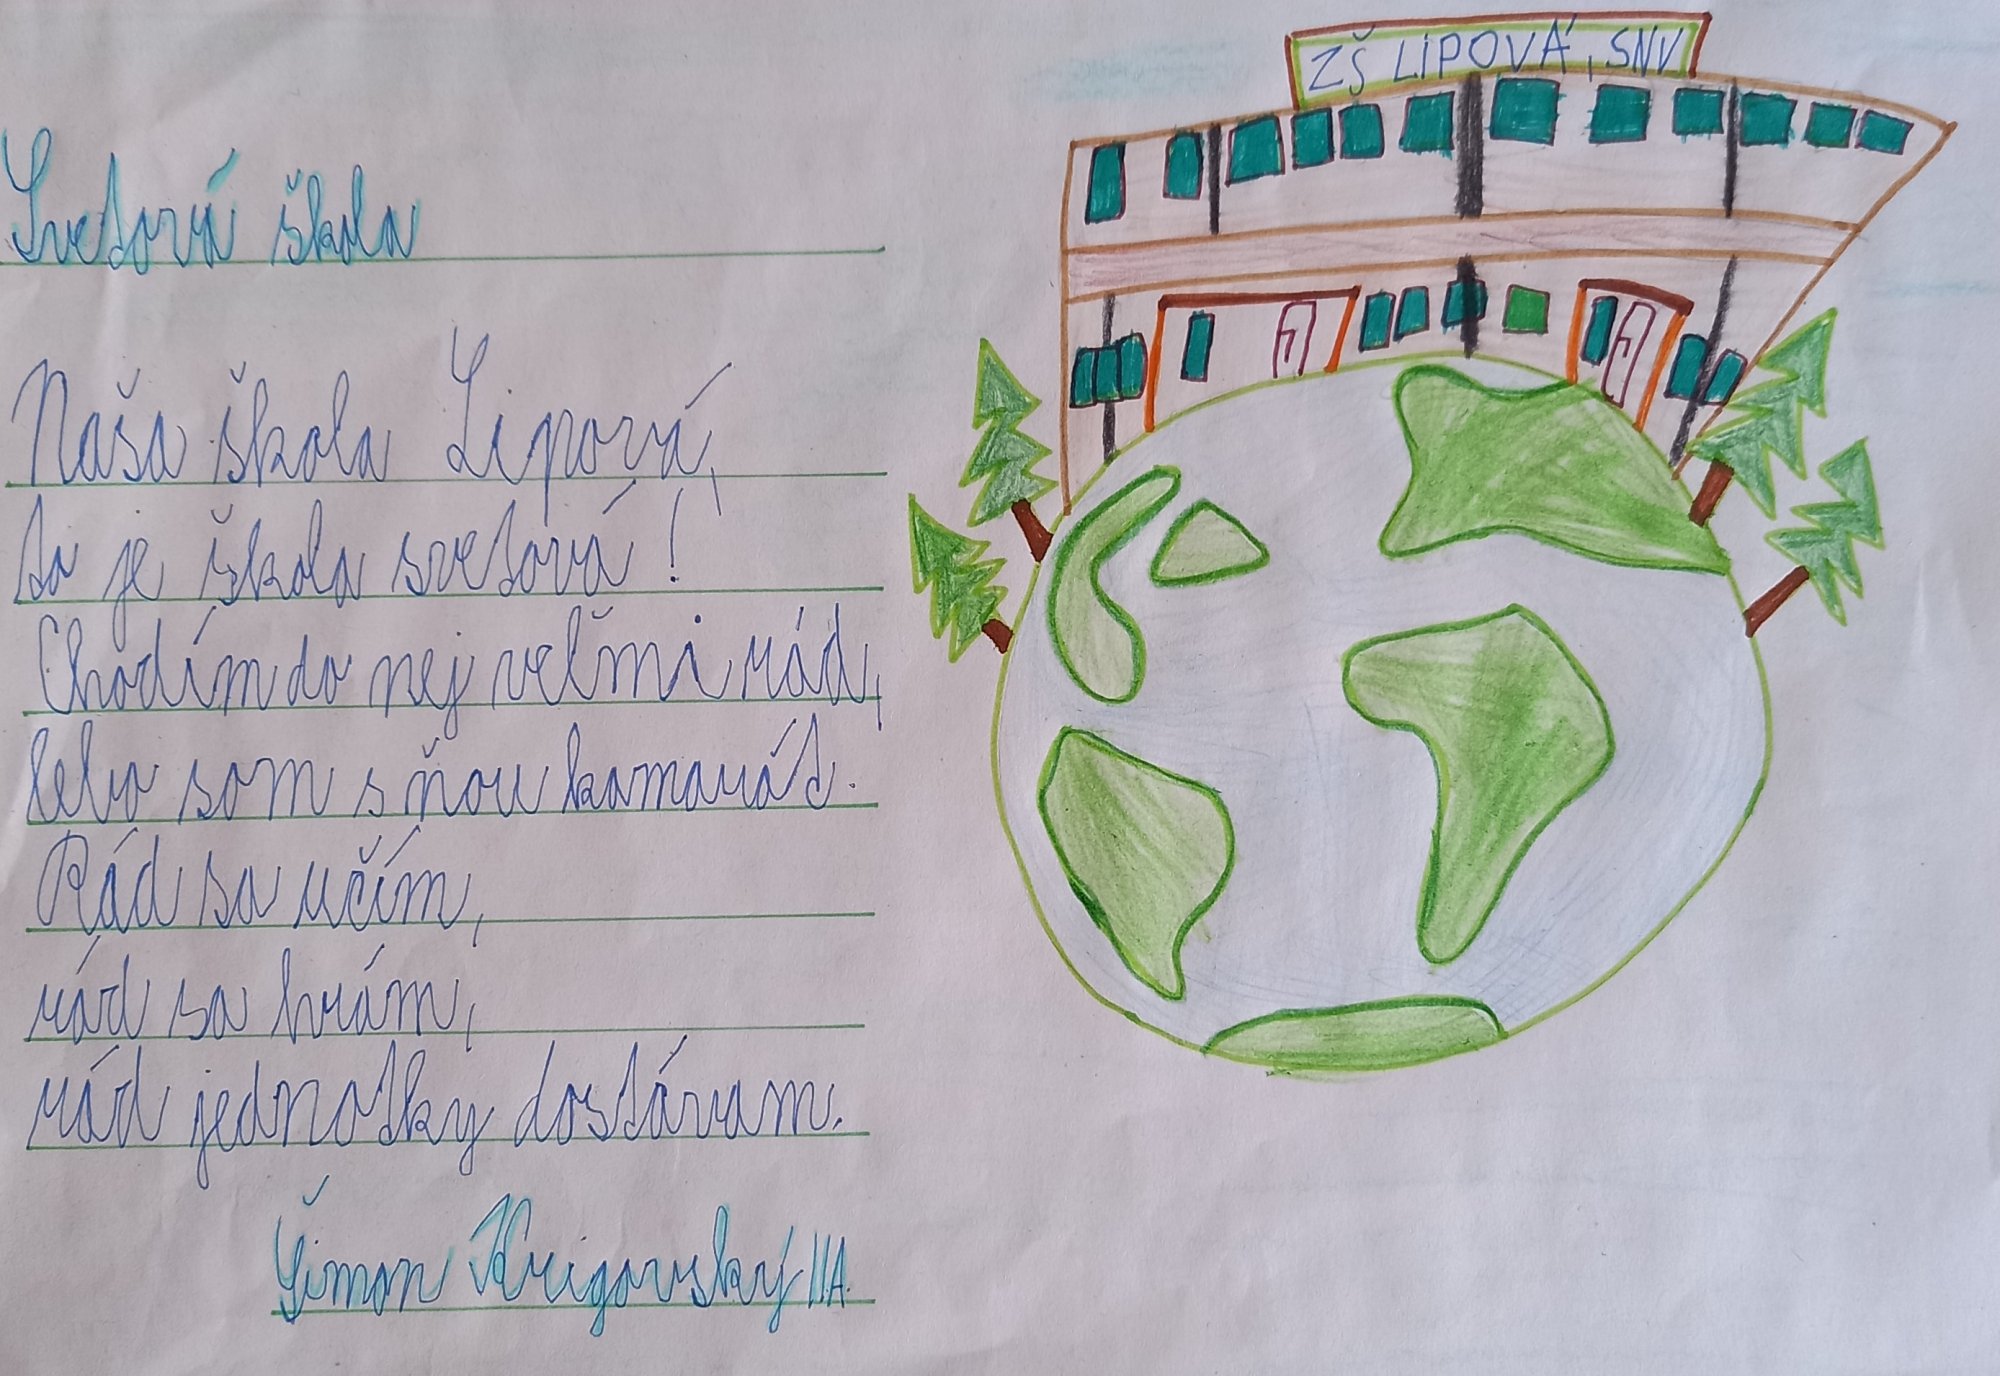 Svetová škola
Naša škola Lipová,
to je škola svetová!
Chodím do nej veľmi rád,
lebo som s ňou kamarát.
Rád sa učím,
rád sa hrám,
rád jednotky dostávam.
Šimon Krigovský II.A.
ZŠ LIPOVÁ, SNV